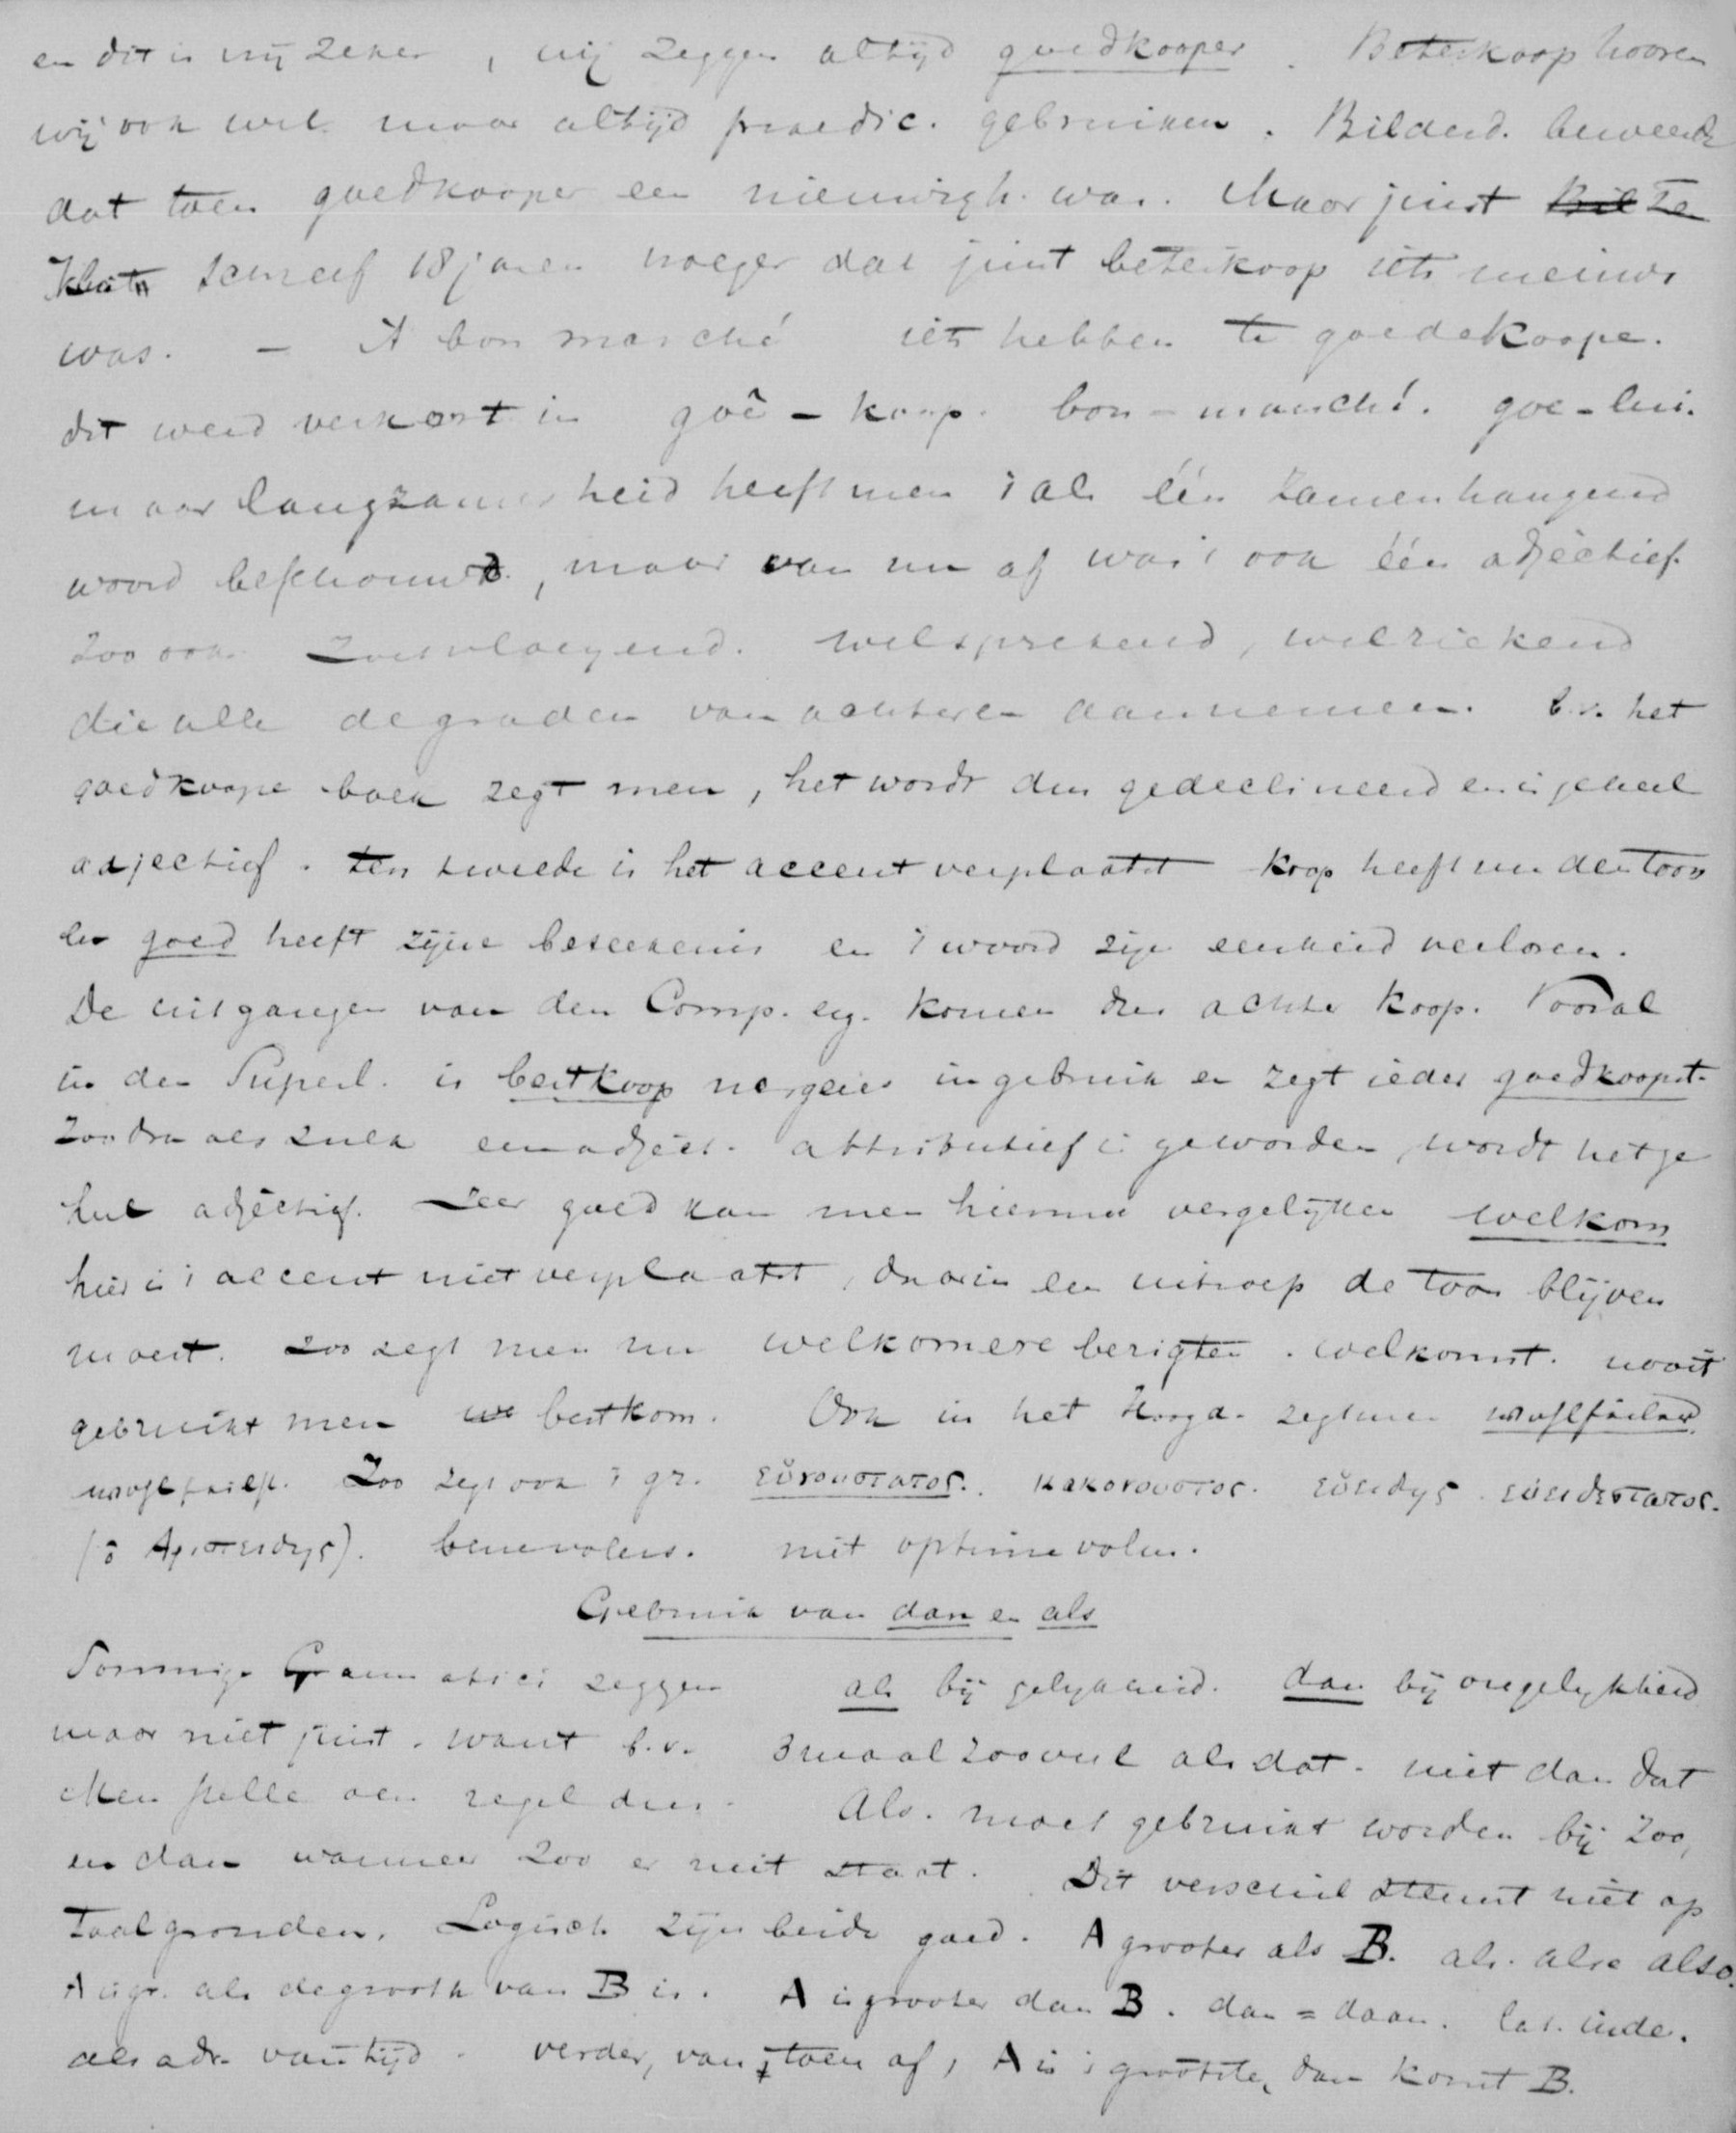 en dit is vrij zeker, wij zeggen altijd goedkooper. Beterkoop hooren
wij ook wel maar altijd praedic. gebruiken. Bilderd. beweerde
dat toen goedkooper een nieuwigh. was. Maar juist Bil Te
schreef 18 jaren vroeger dat juist beterkoop iets nieuws
was. – A bon marché iets hebben te goedekoope.
dit werd verkort in goê – koop. bon – marché. goe – lui.
maar langzamerheid heeft men 't als één zamenhangend
woord beschouwd, maar van nu af was 't ook één adjectief.
Zoo ook zoetvloeyend. welsprekend, welriekend
die alle de graden van achteren aannemen. b.v. het
goedkoope boek zegt men, het wordt dus gedeclineerd en is geheel
adjectief. ten tweede is het accent verplaatst koop heeft nu den toon
en goed heeft zijne beteekenis en 't woord zijn eenheid verloren.
De uitgangen van den Comp. eg. komen dus achter koop. Vooral
in den Superl. is bestkoop nergens in gebruik en zegt ieder goedkoopst.
Zoodra als zulk een adject. attributief is geworden, wordt het ge
heel adjectief. Zeer goed kan men hiermee vergelijken welkom
hier is 't accent niet verplaatst, daar in een uitroep de toon blijven
moest. Zoo zegt men nu welkomere berigten. welkomst. nooit
gebruikt men we bestkom. Ook in het Hoogd. zegt men wohlfeiler
wohlfeilst. Zoo zegt ook 't gr. εὐνουστατος. κακονουστος. εὐειδης. εὐειδεστατος.
(ὁ Αριστειδης). benevolens. niet optime volens.
Gebruik van dan en als
Sommige Grammatici zeggen als bij gelijkheid. dan bij ongelijkheid
maar niet juist. want b.v. 3maal zooveel als dat. niet dan dat
Men stelle den regel dus. Als. moet gebruikt worden bij zoo,
en dan wanneer zoo er niet staat. Dit verschil steunt niet op
taalgronden. Logisch zijn beide goed. A grooter als B. als. alse also.
A is gr. als de grootte van B is. A is grooter dan B. dan = daan. lat. inde.
als adv. van tijd. verder, van toen af, A is 't grootste, dan komt B.